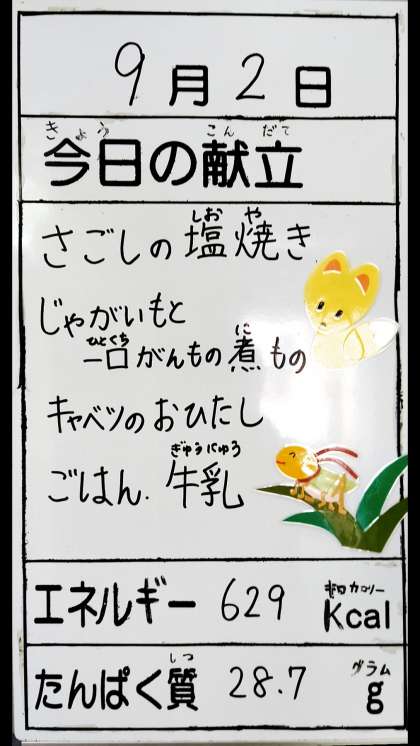 9月2日
きょう こんだて
今日の献立
しお や
さごしの塩焼き
じゃがいもと
ひとくち に
一口がんもの煮もの
キャベツのおひたし
ぎゅうにゅう
ごはん. 牛乳
キロカロリー
エネルギー 629 Kcal
しつ グラム
たんぱく質 28.7 g